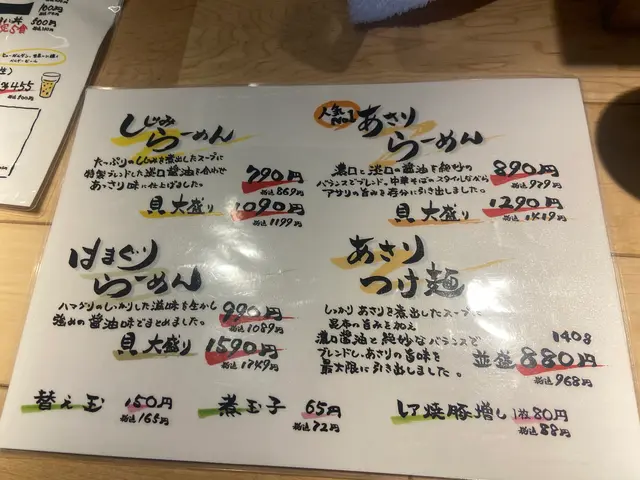 100円
500円
¥455
しじみ
らーめん
たっぷりのしじみを煮出したスープに
特製ブレンドした淡口醤油を合わせ
あっさり味に仕上げました。
790円
税込869円
貝大盛り 1090円
税込1199円
人気No.1
あさり
らーめん
濃口と淡口の醤油を絶妙の
バランスでブレンド。中華そばのスタイルしながら
アサリの旨みを存分に引き出しました。
890円
税込979円
貝大盛り 1290円
税込1419円
はまぐり
らーめん
ハマグリのしっかりした滋味を生かし
強めの醤油味でまとめました。
990円
税込1089円
貝大盛り 1590円
税込1749円
あさり
つけ麺
しっかりあさりを煮出したスープに
昆布の旨みを加え
濃口醤油と絶妙なバランスで
ブレンドし、あさりの旨味を
最大限に引き出しました。
140g
並盛 880円
税込968円
替え玉 150円
税込165円
煮玉子 65円
税込72円
レア焼豚増し 1枚80円
税込88円